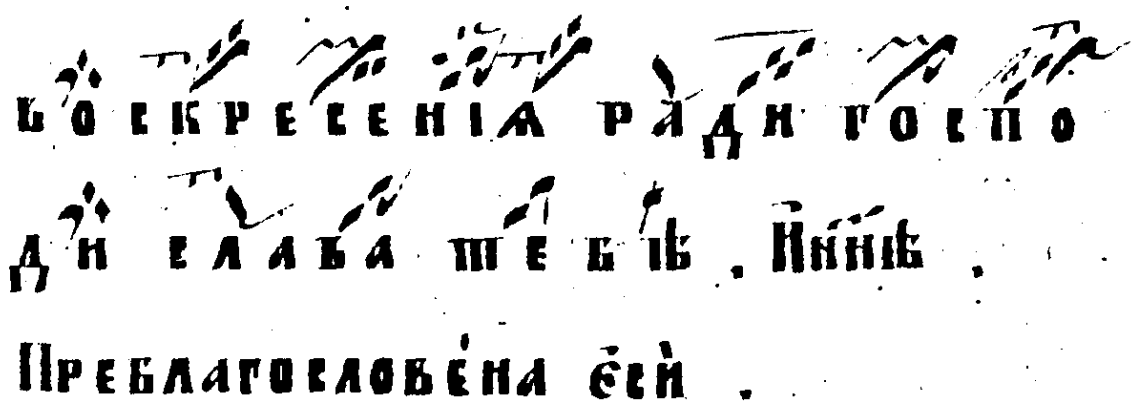 воскресенїѧ ради госпо
ди слава тебѣ . И҆ нн҃ѣ .
Преблагослове́на є҆сѝ .